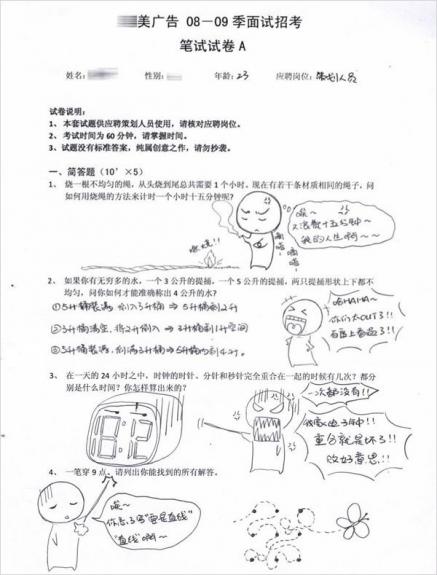 美广告 08—09 季面试招考
笔试试卷 A
姓名: 性别: 年龄: 23 应聘岗位: 策划人员
试卷说明:
1、 本套试题供应聘策划人员使用,请核对应聘岗位。
2、 考试时间为 60 分钟,请掌握时间。
3、 试题没有标准答案,纯属创意之作,请勿抄袭。
一、简答题(10’×5)
1、 烧一根不均匀的绳,从头烧到尾总共需要 1 个小时。现在有若干条材质相同的绳子,问
如何用烧绳的方法来计时一个小时十五分钟呢?
唉~
又浪费十五分钟~
我的人生啊~~
燃烧!!
2、 如果你有无穷多的水,一个 3 公升的提捅,一个 5 公升的提捅,两只提捅形状上下都不
均匀,问你如何才能准确称出 4 公升的水?
①5升桶装满,倒入3升桶 ⇒ 5升桶剩2升
②3升桶清空,将2升倒入 ⇒ 3升桶剩1升空间
③5升桶装满,倒满3升桶⇒5升桶内剩4升。
哈HAHA~
你们太OUT了!!
百度上看过了!!
3、 在一天的 24 小时之中,时钟的时针、分针和秒针完全重合在一起的时候有几次?都分
别是什么时间?你怎样算出来的?
8:12
一次都没有!!
重合就是坏了!!
没好意思!!
4、 一笔穿 9 点,请列出你能找到的所有解答。
唉~
你忘了写“要是直线”
“直线”啊~~